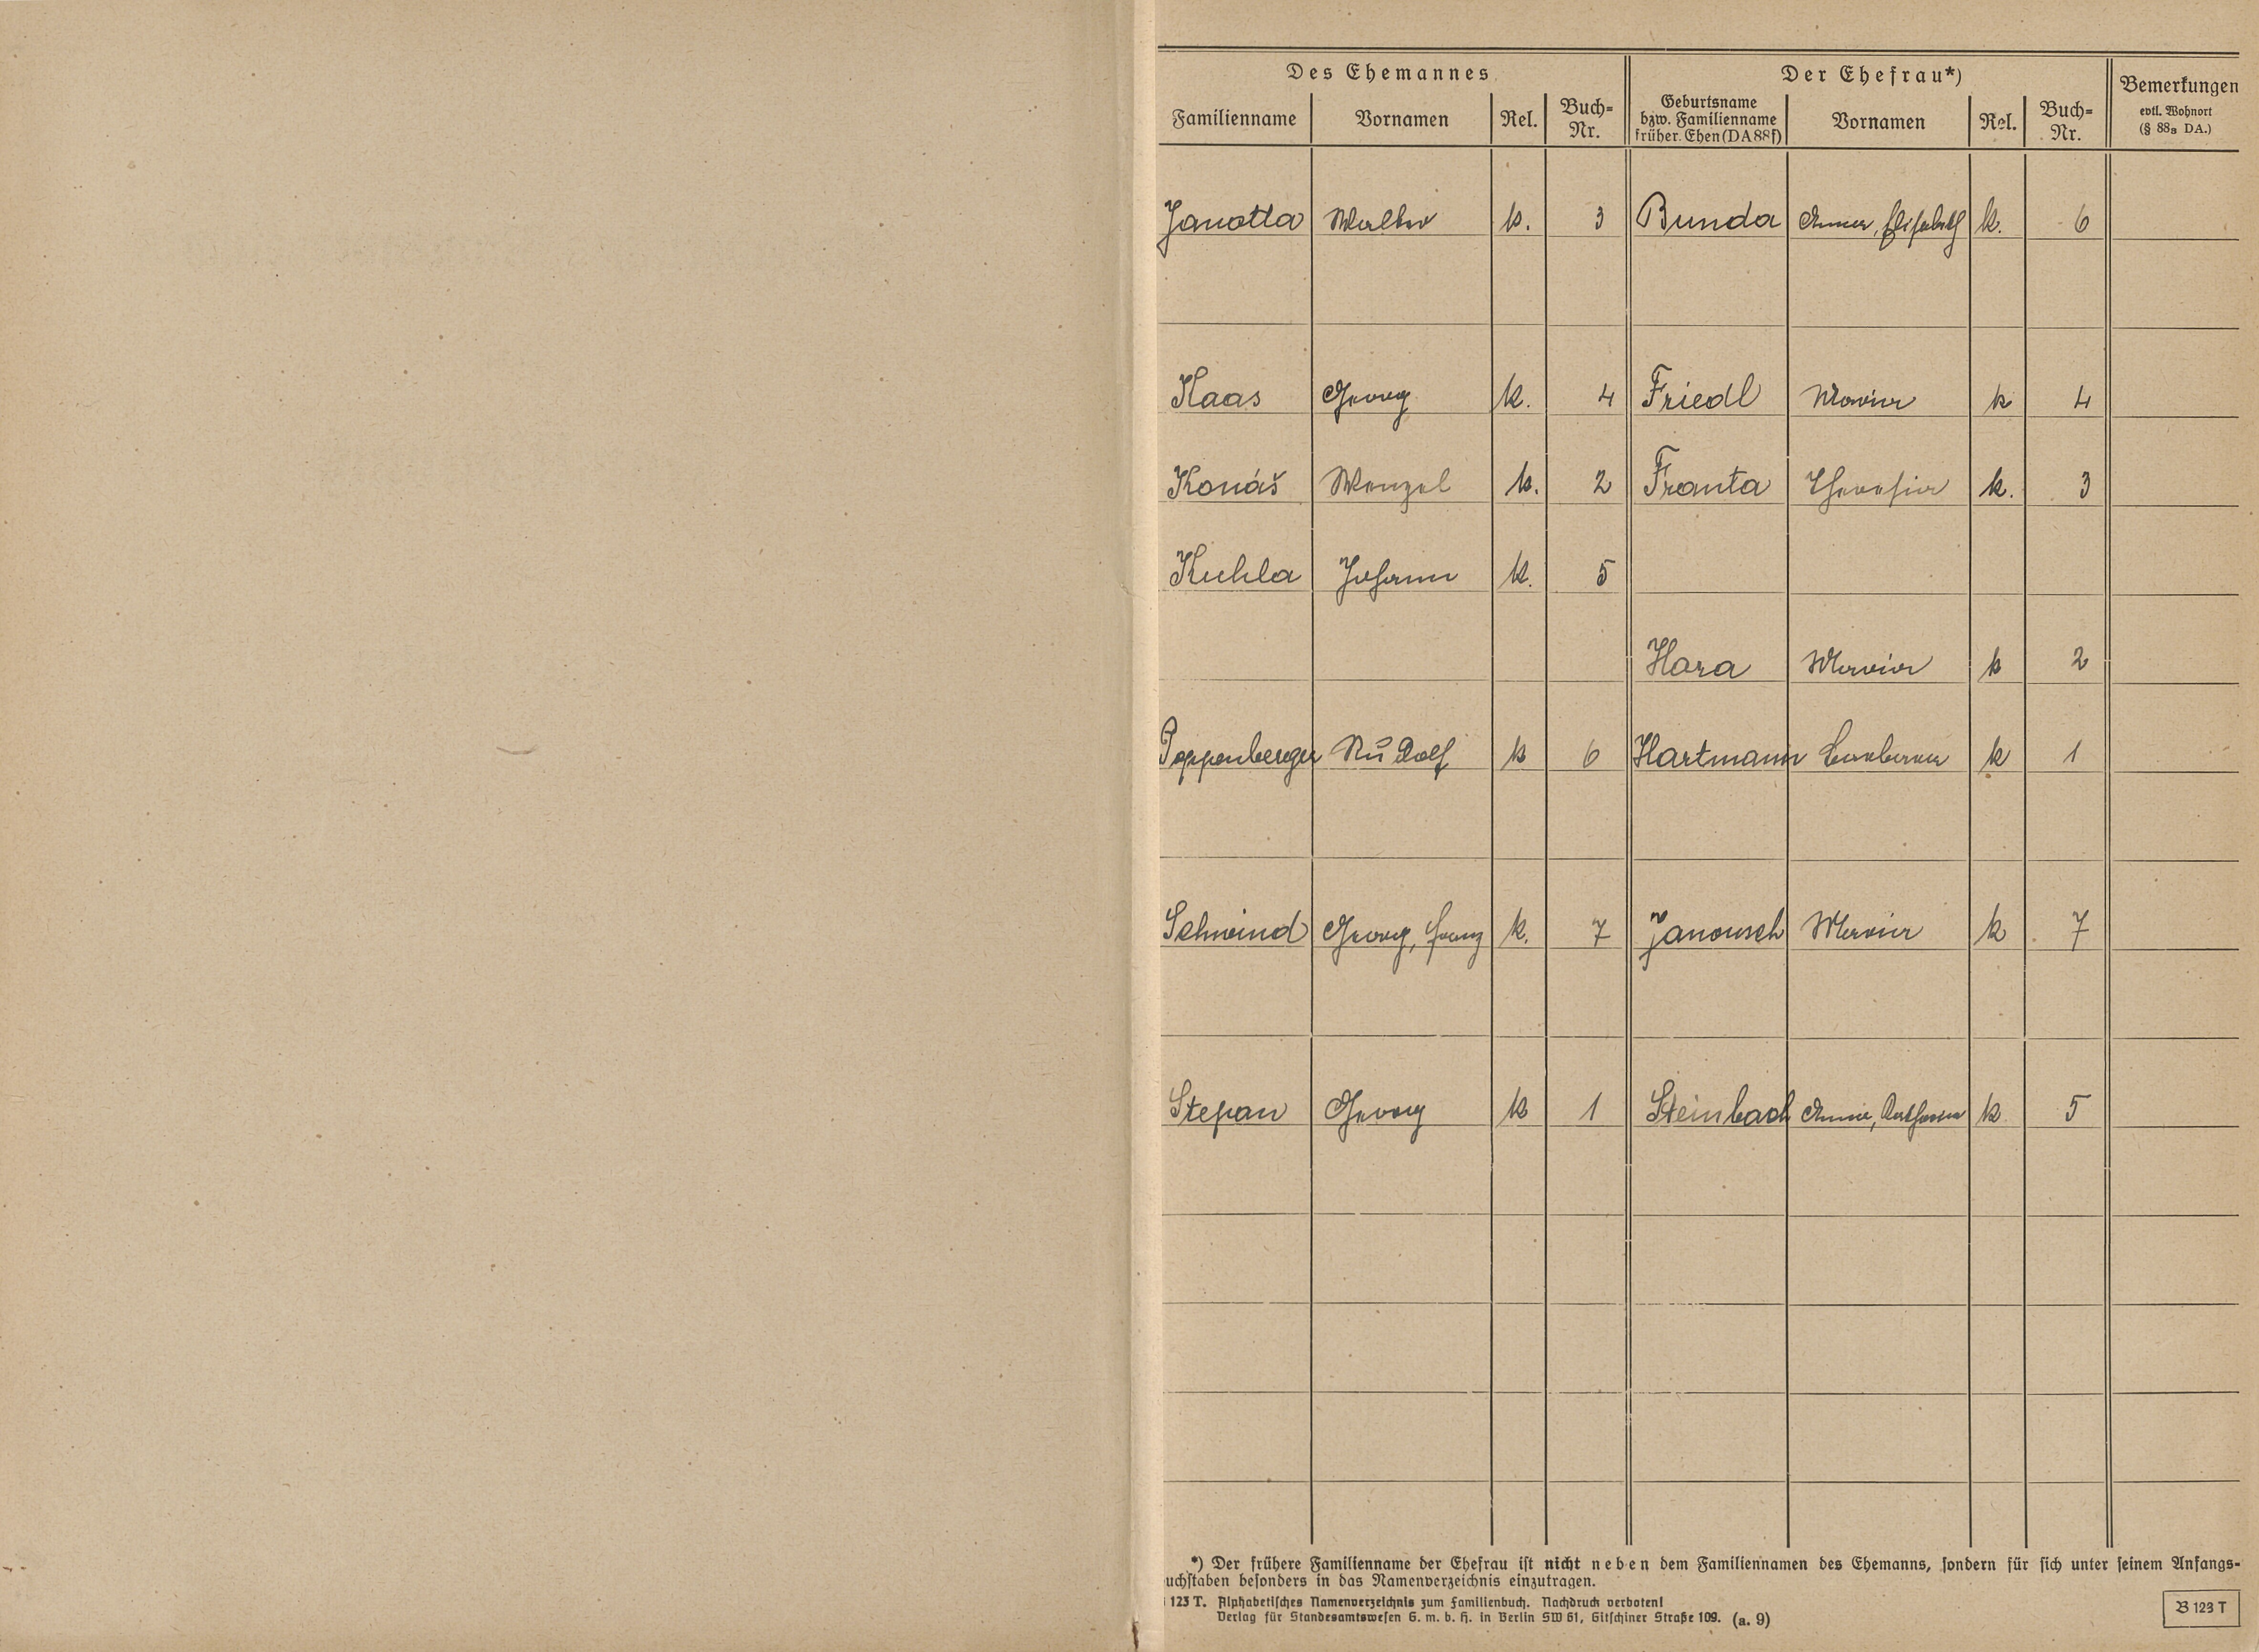 Des Ehemannes Der Ehefrau*) Bemerkungen
Familienname Vornamen Rel. Buch-Nr. Geburtsname bzw. Familienname früher. Ehen (DA 88f) Vornamen Rel. Buch-Nr. evtl. Wohnort (§ 88₃ DA.)
Janotta Walter k. 3 Bunda Anna, Elisabeth k. 6
Haas Georg k. 4 Friedl Maria k 4
Konáš Wenzel k. 2 Franta Theresia k. 3
Kuhla Johann k. 5
Hara Maria k 2
Poppenberger Rudolf k 6 Hartmann Barbara k 1
Schwind Georg, Franz k. 7 Janousch Maria k 7
Stepan Georg k 1 Steinbach Anna, Katharina k. 5
*) Der frühere Familienname der Ehefrau ist nicht neben dem Familiennamen des Ehemanns, sondern für sich unter seinem Anfangs-
uchstaben besonders in das Namenverzeichnis einzutragen.
123 T. Alphabetisches Namenverzeichnis zum Familienbuch. Nachdruck verboten!
Verlag für Standesamtswesen G. m. b. H. in Berlin SW 61, Gitschiner Straße 109. (a. 9)
B 123 T